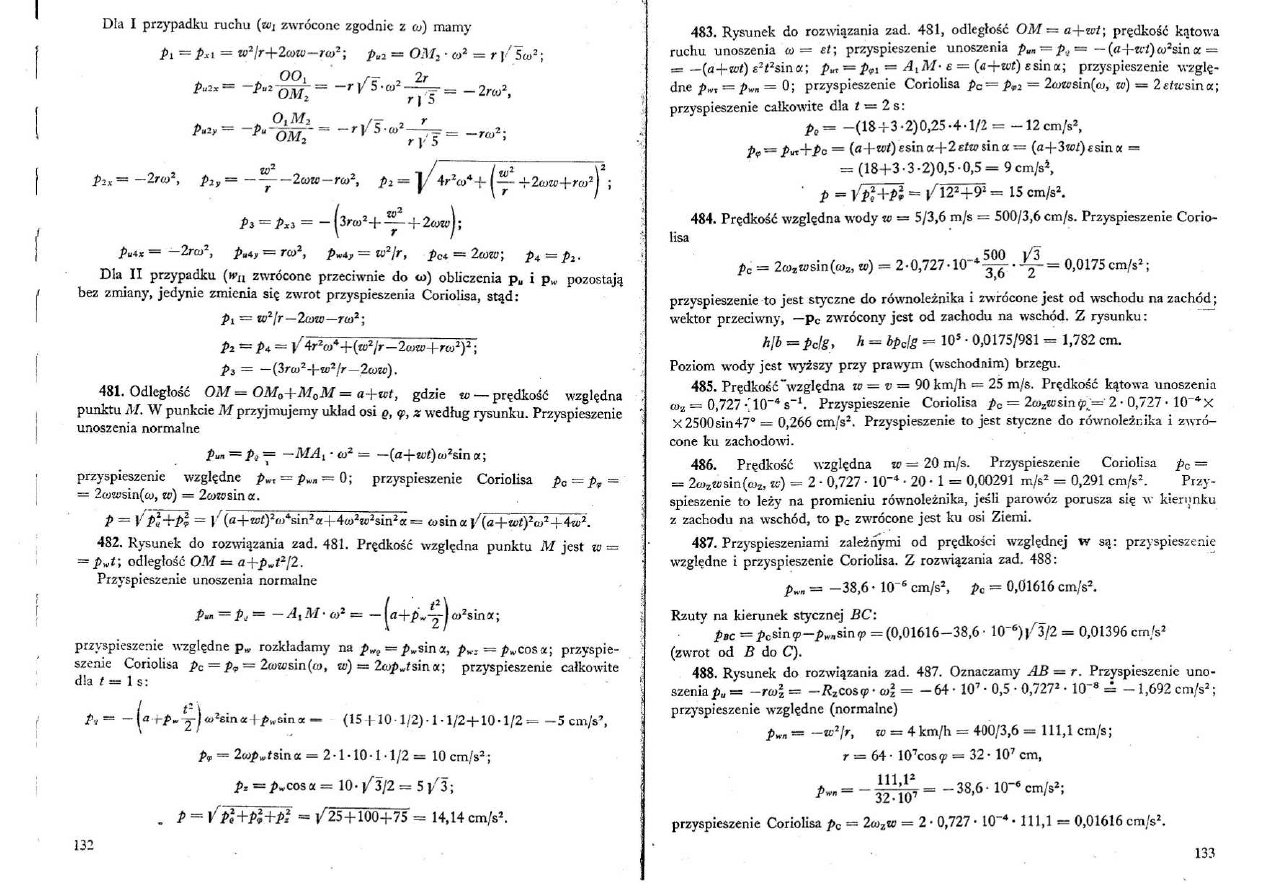 Dla I przypadku ruchu (w₁ zwrócone zgodnie z ω) mamy
p₁ = pₓ₁ = w²/r+2ωw−rω²; pᵤ₂ = OM₂ · ω² = r√5ω²;
pᵤ₂ₓ = −pᵤ₂ OO₁/OM₂ = −r√5·ω² 2r/r√5 = −2rω²,
pᵤ₂ᵧ = −pᵤ O₁M₂/OM₂ = −r√5·ω² r/r√5 = −rω²;
p₂ₓ = −2rω², p₂ᵧ = −w²/r−2ωw−rω², p₂ = √(4r²ω⁴+(w²/r+2ωw+rω²)²);
p₃ = pₓ₃ = −(3rω²+w²/r+2ωw);
pᵤ₄ₓ = −2rω², pᵤ₄ᵧ = rω², p_w₄ᵧ = w²/r, p_c₄ = 2ωw; p₄ = p₂.
Dla II przypadku (w_II zwrócone przeciwnie do ω) obliczenia pᵤ i p_w pozostają
bez zmiany, jedynie zmienia się zwrot przyspieszenia Coriolisa, stąd:
p₁ = w²/r−2ωw−rω²;
p₂ = p₄ = √(4r²ω⁴+(w²/r−2ωw+rω²)²);
p₃ = −(3rω²+w²/r−2ωw).
481. Odległość OM = OM₀+M₀M = a+wt, gdzie w — prędkość względna
punktu M. W punkcie M przyjmujemy układ osi ϱ, φ, z według rysunku. Przyspieszenie
unoszenia normalne
pᵤₙ = p_ϱ = −MA₁ · ω² = −(a+wt)ω²sin α;
przyspieszenie względne p_wτ = p_wn = 0; przyspieszenie Coriolisa p_C = p_φ =
= 2ωwsin(ω, w) = 2ωwsin α.
p = √(p_ϱ²+p_φ²) = √((a+wt)²ω⁴sin²α+4ω²w²sin²α) = ωsin α√((a+wt)²ω²+4w²).
482. Rysunek do rozwiązania zad. 481. Prędkość względna punktu M jest w =
= p_wt; odległość OM = a+p_wt²/2.
Przyspieszenie unoszenia normalne
pᵤₙ = p_ϱ = −A₁M·ω² = −(a+p_w t²/2)ω²sinα;
przyspieszenie względne p_w rozkładamy na p_wϱ = p_wsin α, p_wz = p_wcos α; przyspie-
szenie Coriolisa p_C = p_φ = 2ωwsin(ω, w) = 2ωp_wtsin α; przyspieszenie całkowite
dla t = 1 s:
p_ϱ = −(a+p_w t²/2)ω²sin α+p_wsin α = (15+10·1/2)·1·1/2+10·1/2 = −5 cm/s²,
p_φ = 2ωp_wtsin α = 2·1·10·1·1/2 = 10 cm/s²;
p_z = p_wcos α = 10·√3/2 = 5√3;
p = √(p_ϱ²+p_φ²+p_z²) = √(25+100+75) = 14,14 cm/s².
132
483. Rysunek do rozwiązania zad. 481, odległość OM = a+wt; prędkość kątowa
ruchu unoszenia ω = εt; przyspieszenie unoszenia pᵤₙ = p_ϱ = −(a+wt)ω²sin α =
= −(a+wt) ε²t²sin α; p_uτ = p_φ₁ = A₁M·ε = (a+wt) εsin α; przyspieszenie wzglę-
dne p_wτ = p_wn = 0; przyspieszenie Coriolisa p_C = p_φ₂ = 2ωwsin(ω, w) = 2εtwsin α;
przyspieszenie całkowite dla t = 2 s:
p_ϱ = −(18+3·2)0,25·4·1/2 = −12 cm/s²,
p_φ = p_uτ+p_C = (a+wt) εsin α+2εtw sin α = (a+3wt) εsin α =
= (18+3·3·2)0,5·0,5 = 9 cm/s²,
p = √(p_ϱ²+p_φ²) = √(12²+9²) = 15 cm/s².
484. Prędkość względna wody w = 5/3,6 m/s = 500/3,6 cm/s. Przyspieszenie Corio-
lisa
p_C = 2ω_zwsin(ω_z, w) = 2·0,727·10⁻⁴ 500/3,6 · √3/2 = 0,0175 cm/s²;
przyspieszenie to jest styczne do równoleżnika i zwrócone jest od wschodu na zachód;
wektor przeciwny, −p_C zwrócony jest od zachodu na wschód. Z rysunku:
h/b = p_C/g, h = bp_C/g = 10⁵ · 0,0175/981 = 1,782 cm.
Poziom wody jest wyższy przy prawym (wschodnim) brzegu.
485. Prędkość względna w = v = 90 km/h = 25 m/s. Prędkość kątowa unoszenia
ω_z = 0,727·10⁻⁴ s⁻¹. Przyspieszenie Coriolisa p_C = 2ω_zwsin φ = 2·0,727·10⁻⁴×
×2500sin47° = 0,266 cm/s². Przyspieszenie to jest styczne do równoleżnika i zwró-
cone ku zachodowi.
486. Prędkość względna w = 20 m/s. Przyspieszenie Coriolisa p_C =
= 2ω_zwsin(ω_z, w) = 2 · 0,727 · 10⁻⁴ · 20 · 1 = 0,00291 m/s² = 0,291 cm/s². Przy-
spieszenie to leży na promieniu równoleżnika, jeśli parowóz porusza się w kierunku
z zachodu na wschód, to p_C zwrócone jest ku osi Ziemi.
487. Przyspieszeniami zależnymi od prędkości względnej w są: przyspieszenie
względne i przyspieszenie Coriolisa. Z rozwiązania zad. 488:
p_wn = −38,6·10⁻⁶ cm/s², p_C = 0,01616 cm/s².
Rzuty na kierunek stycznej BC:
p_BC = p_Csin φ−p_wnsin φ = (0,01616−38,6·10⁻⁶)√3/2 = 0,01396 cm/s²
(zwrot od B do C).
488. Rysunek do rozwiązania zad. 487. Oznaczamy AB = r. Przyspieszenie uno-
szenia pᵤ = −rω_z² = −R_zcos φ · ω_z² = −64 · 10⁷ · 0,5 · 0,727² · 10⁻⁸ ≐ −1,692 cm/s²;
przyspieszenie względne (normalne)
p_wn = −w²/r, w = 4 km/h = 400/3,6 = 111,1 cm/s;
r = 64 · 10⁷cos φ = 32 · 10⁷ cm,
p_wn = −111,1²/32·10⁷ = −38,6·10⁻⁶ cm/s²;
przyspieszenie Coriolisa p_C = 2ω_zw = 2 · 0,727 · 10⁻⁴ · 111,1 = 0,01616 cm/s².
133